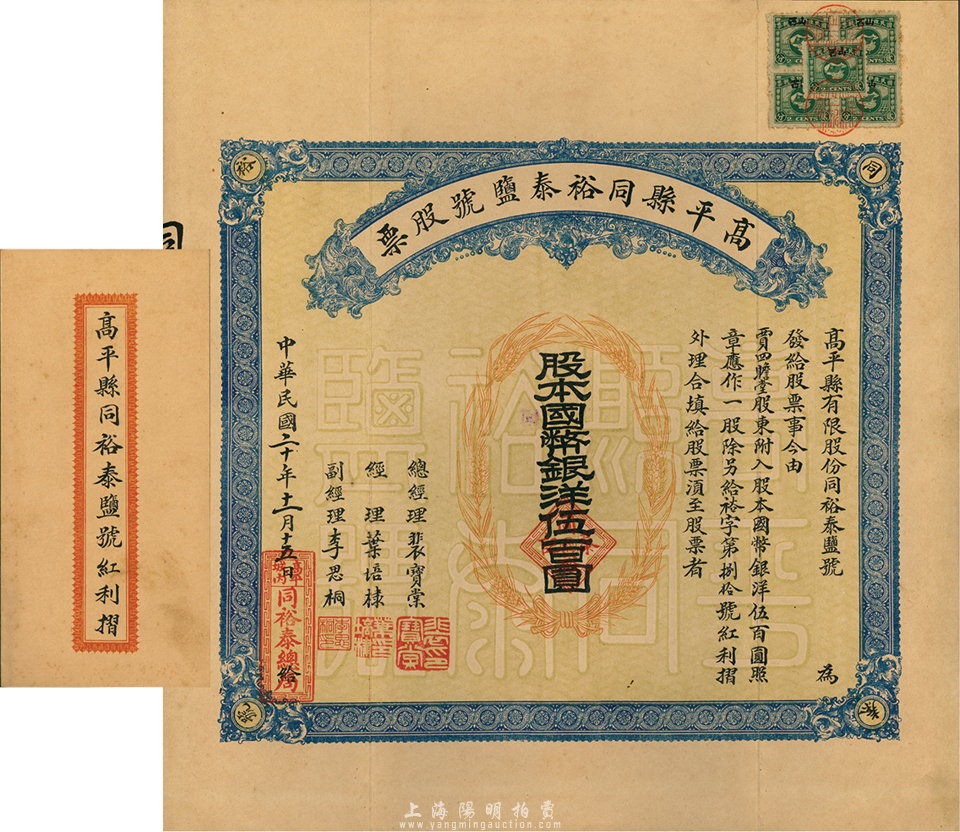 高平縣同裕泰鹽號股票
高平縣有限股份同裕泰鹽號 為
發給股票事今由
賈四勝堂股東附入股本國幣銀洋伍百圓照
章應作一股除另給裕字第捌拾號紅利摺
外理合填給股票須至股票者
股本國幣銀洋伍百圓
總經理裴寶棠
經理葉培棣
副經理李思桐
中華民國二十年十一月十五日 給
同裕泰總局
高平縣同裕泰鹽號紅利摺
同
裕
泰
號
2 CENTS
2 CENTS
2 CENTS
2 CENTS
2 CENTS
上海陽明拍賣
www.yangmingauction.com